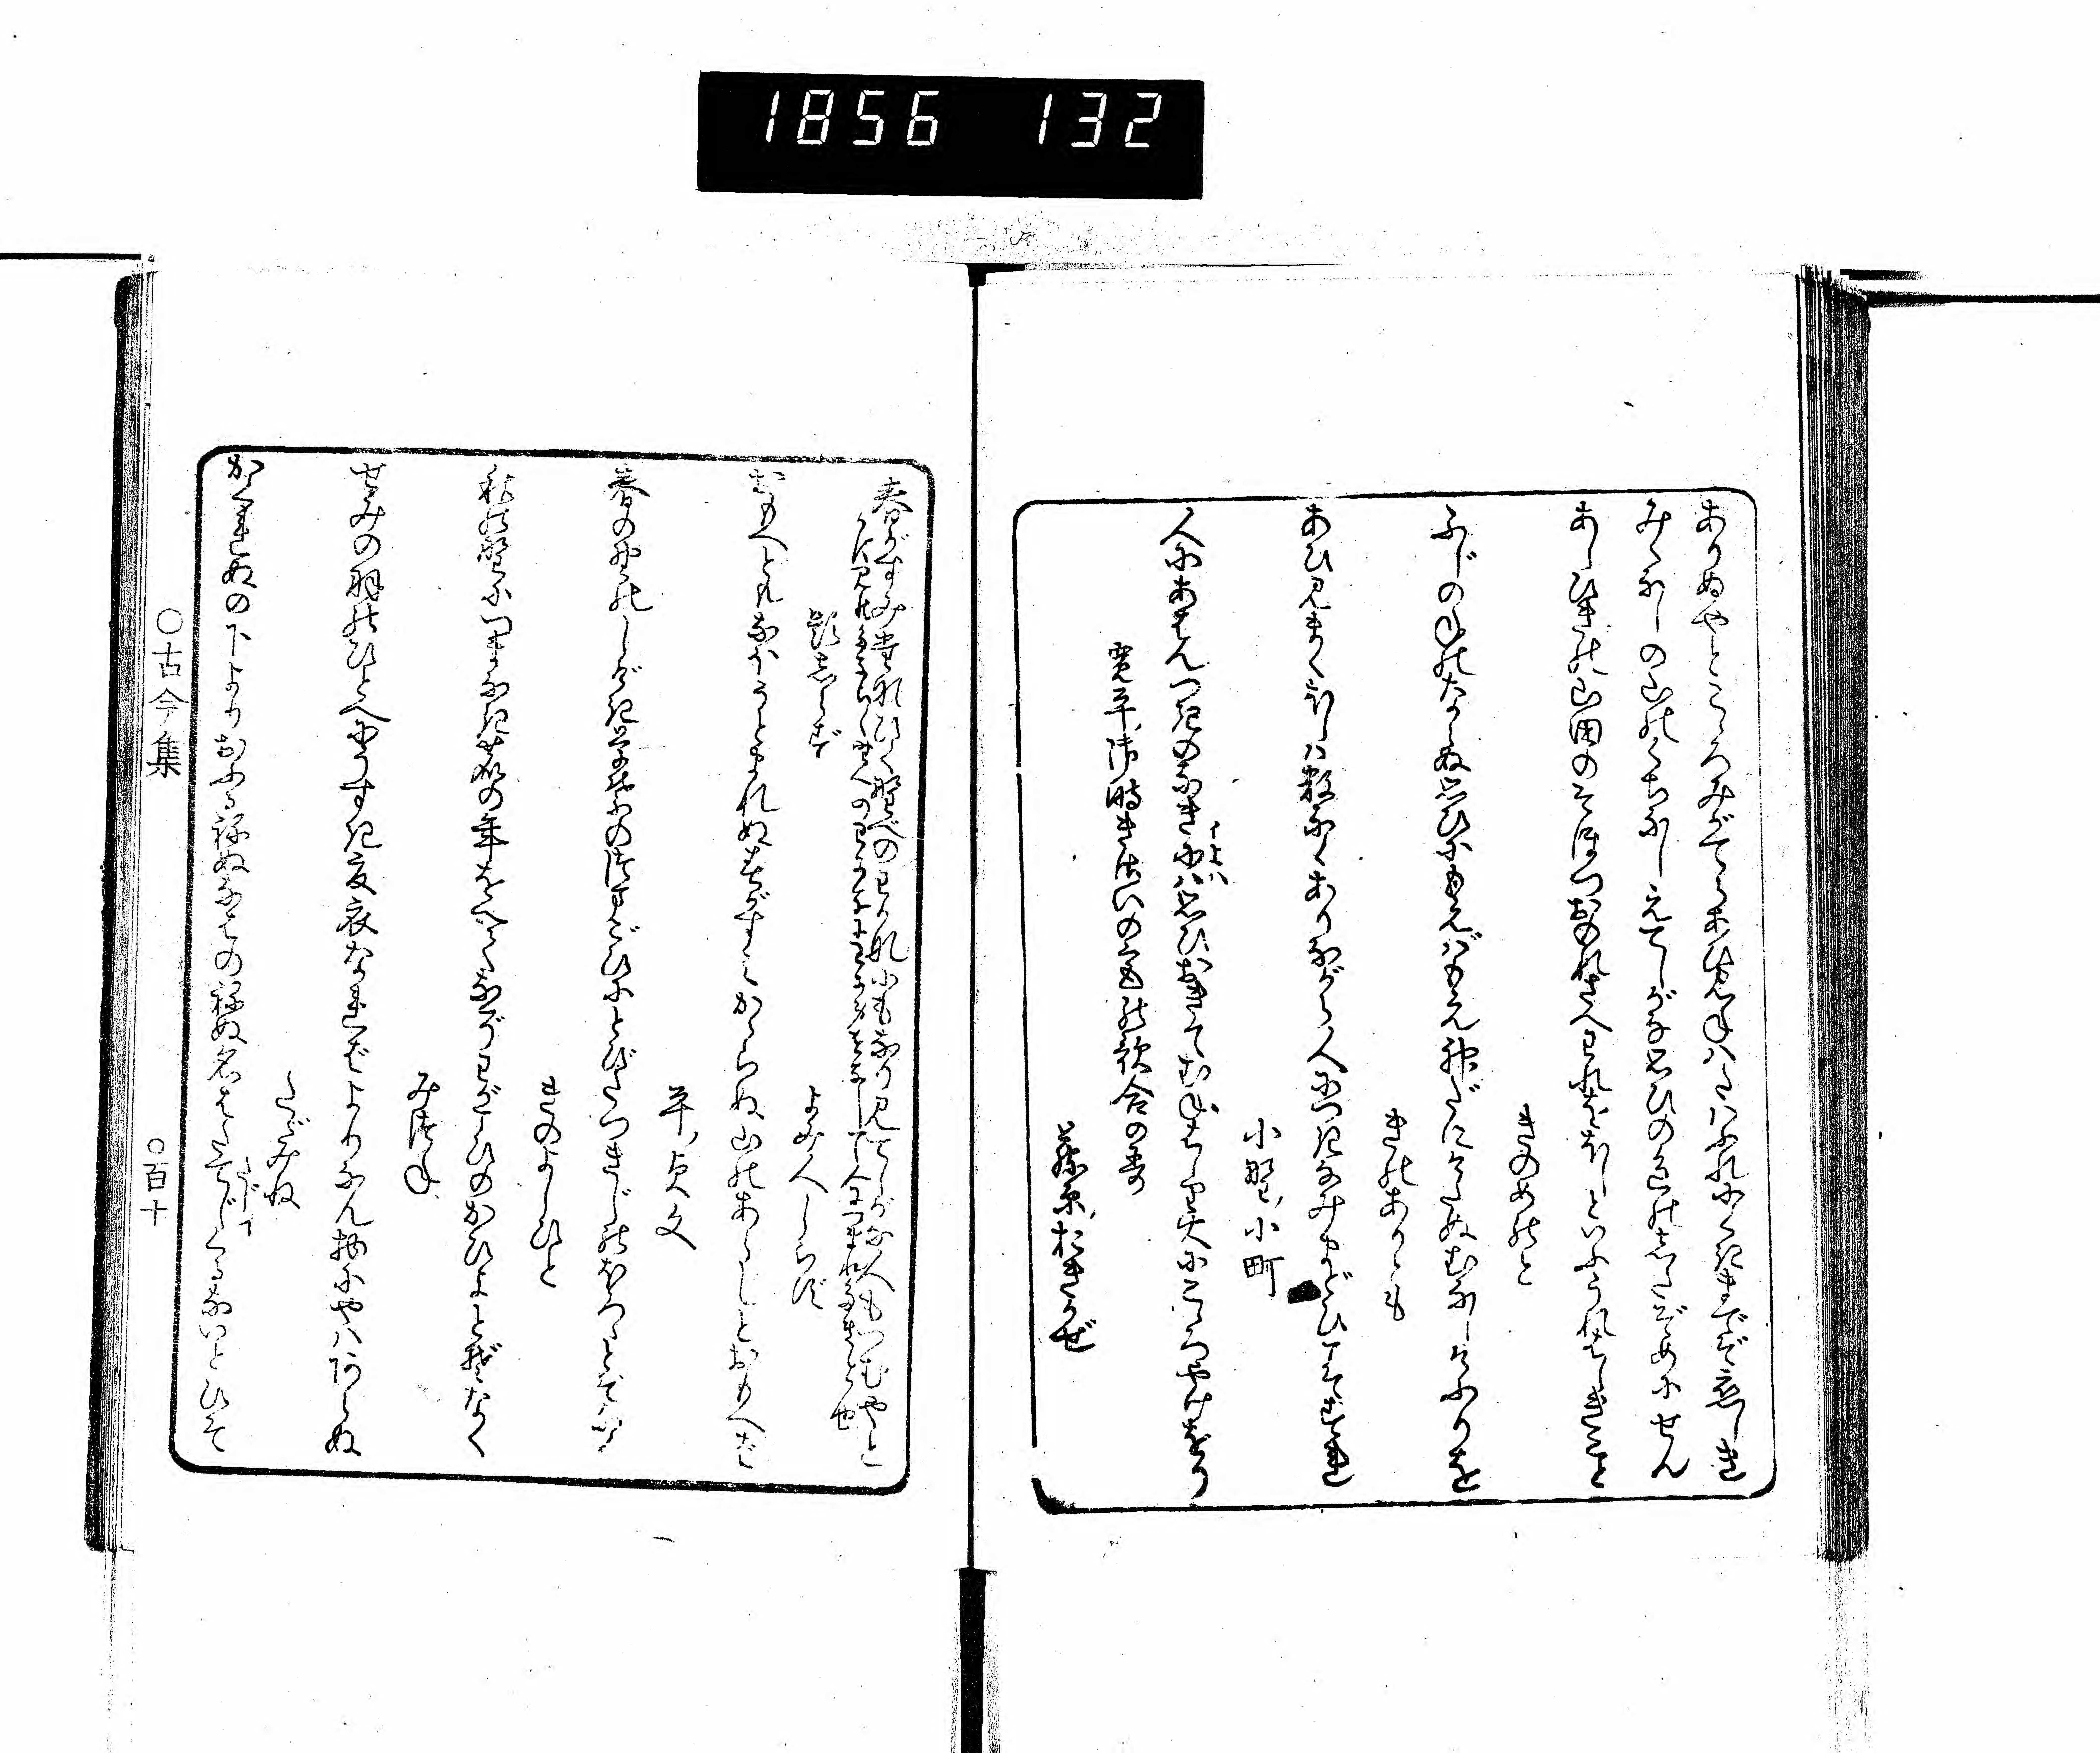 1856 132
ありぬやとこゝろみがてらあひ見ねハたハふれにくきまでぞ恋しき
みゝなしの山のくちなしえてしがな思ひの色のしたぞめにせん
あしひきの山田のそほつおのれさへわれをほしといふうれはしきこと
きのめのと
ふじのねのならぬ思ひにもえばもえ神だにけたぬむなしけふりを
きのありとも
あひ見まくほしハ数なくありながら人につきなみまどひこそすれ
小野小町
人にあはんつきのなきにハ思ひおきてむねはしり火にこゝろやけをり
寛平御時きさいの宮の歌合の哥
藤原おきかぜ
春がすみたなびく野べのわかなにもなり見てしがな人もつむやと
題しらず
よみ人しらず
おもへどもなほうとまれぬ春がすみかゝらぬ山のあらじとおもへば
平貞文
春の野のしげき草ばのつまごひにとびたつきじのほろゝとぞなく
きのよしひと
秋の野につまなき鹿の年をへてなぞわがこひのかひよとぞなく
みつね
せみの羽のひとへにうすき夏衣なればよりなん物にやハあらぬ
たゞみね
かくれぬの下よりおふるねぬなはのねぬ名はたてじくるないとひそ
○古今集 ○百十